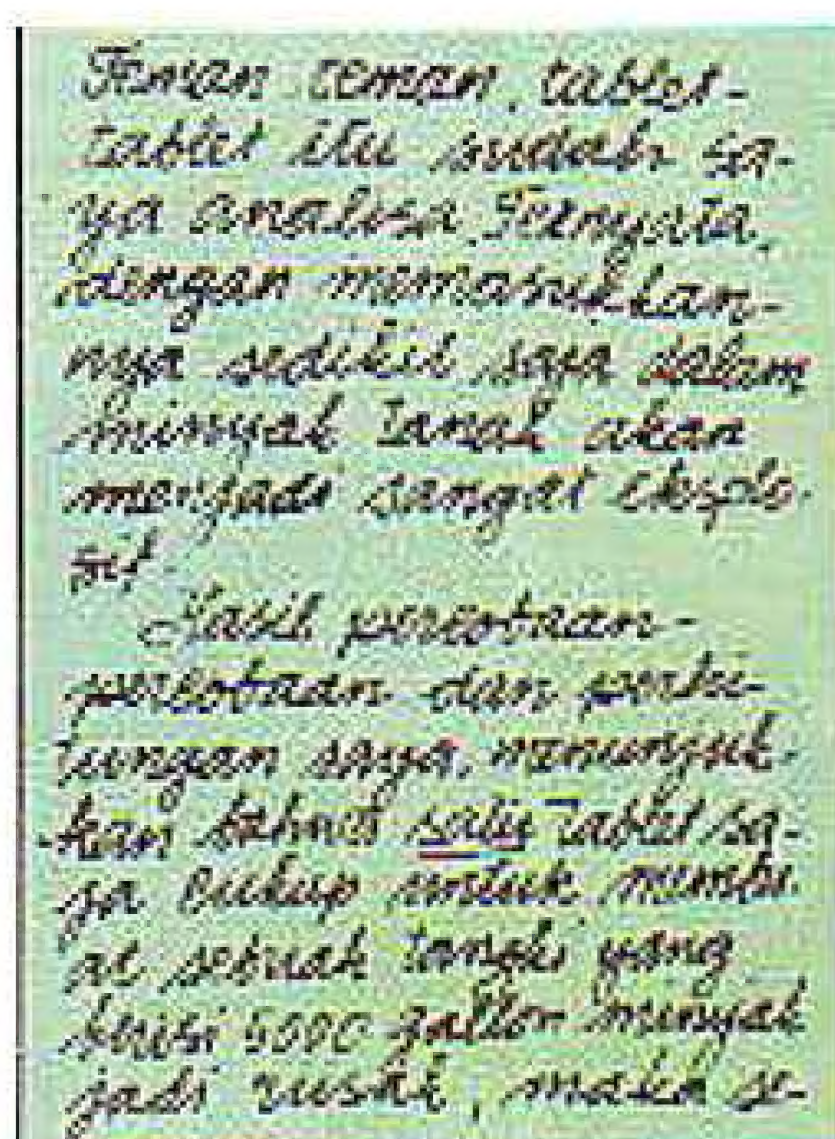 Teman teman, tablet-
tablet itu sudah sa-
ya analisa. Ternyata,
dengan memasukkan-
nya sedikit saja dalam
minyak tanah akan
menjadi sangat eksplo-
sif.
Hasil percobaan-
percobaan dan perhi-
tungan saya, menunjuk-
kan bahwa satu tablet sa-
ja cukup untuk membu-
at sebuah tangki yang
berisi 5000 gallon minyak
jadi rusak, maka se-